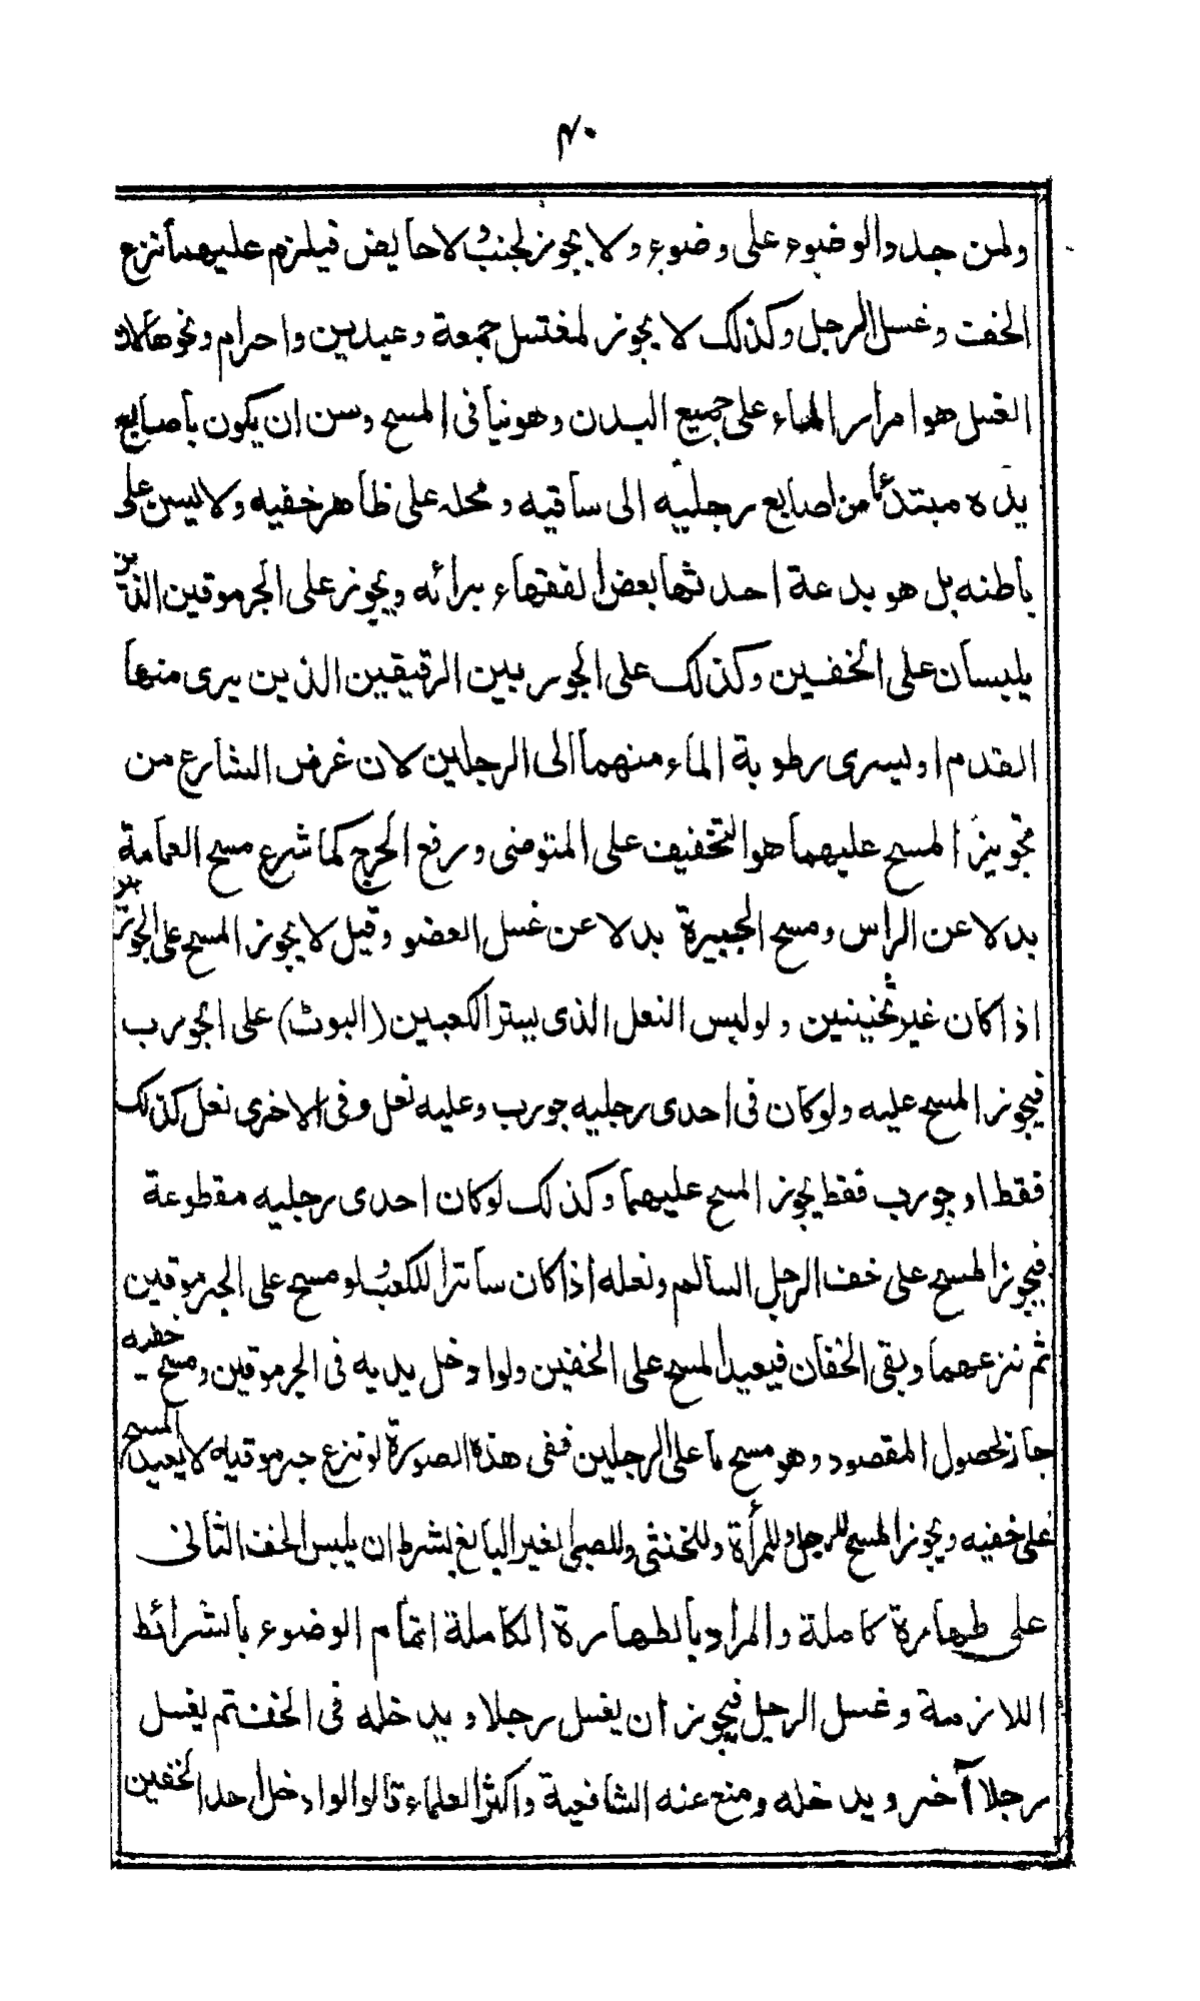 ۴۰
ولمن جدد الوضوء على وضوء ولا يجوز لجنب ولا حايض فيلزم عليهما نزع
الخف وغسل الرجل وكذلك لا يجوز لمغتسل جمعة وعيدين واحرام ونحوها لان
الغسل هو امرار الماء على جميع البدن وهو نيا فى المسح وسن ان يكون باصابع
يده مبتدئا من اصابع رجليه الى ساقيه ومحله على ظاهر خفيه ولا يسن على
باطنه بل هو بدعة احدثها بعض الفقهاء برائه ويجوز على الجرموقين الذين
يلبسان على الخفين وكذلك على الجوربين الرقيقين الذين يرى منها
القدم او ليسرى رطوبة الماء منهما الى الرجلين لان غرض الشارع من
تجويز المسح عليهما هو التخفيف على المتوضى ورفع الحرج كما شرع مسح العمامة
بدلا عن الراس ومسح الجبيرة بدلا عن غسل العضو وقيل لا يجوز المسح على الجوربين
اذا كان غير ثخينين ولو لبس النعل الذى يستر الكعبين (البوٹ) على الجورب
فيجوز المسح عليه ولو كان فى احدى رجليه جورب وعليه نعل وفى الاخرى نعل كذلك
فقط او جورب فقط يجوز المسح عليهما وكذلك لو كان احدى رجليه مقطوعة
فيجوز المسح على خف الرجل السالم ونعله اذا كان ساترا للكعب ولو مسح على الجرموقين
ثم نزعهما وبقى الخفان فيعيد المسح على الخفين ولو ادخل يديه فى الجرموقين ومسح خفيه
جاز لحصول المقصود وهو مسح ما على الرجلين ففى هذه الصورة لو نزع جرموقيه لا يعيد المسح
على خفيه ويجوز المسح للرجل وللمرأة وللخنثى وللصبى لغير البالغ بشرط ان يلبس الخف الثانى
على طهارة كاملة والمراد بالطهارة الكاملة اتمام الوضوء بالشرائط
اللازمة وغسل الرجل فيجوز ان يغسل رجلا ويدخله فى الخف ثم يغسل
رجلا آخر ويدخله ومنع عنه الشافعية واكثر العلماء قالوا لو ادخل احد الخفين